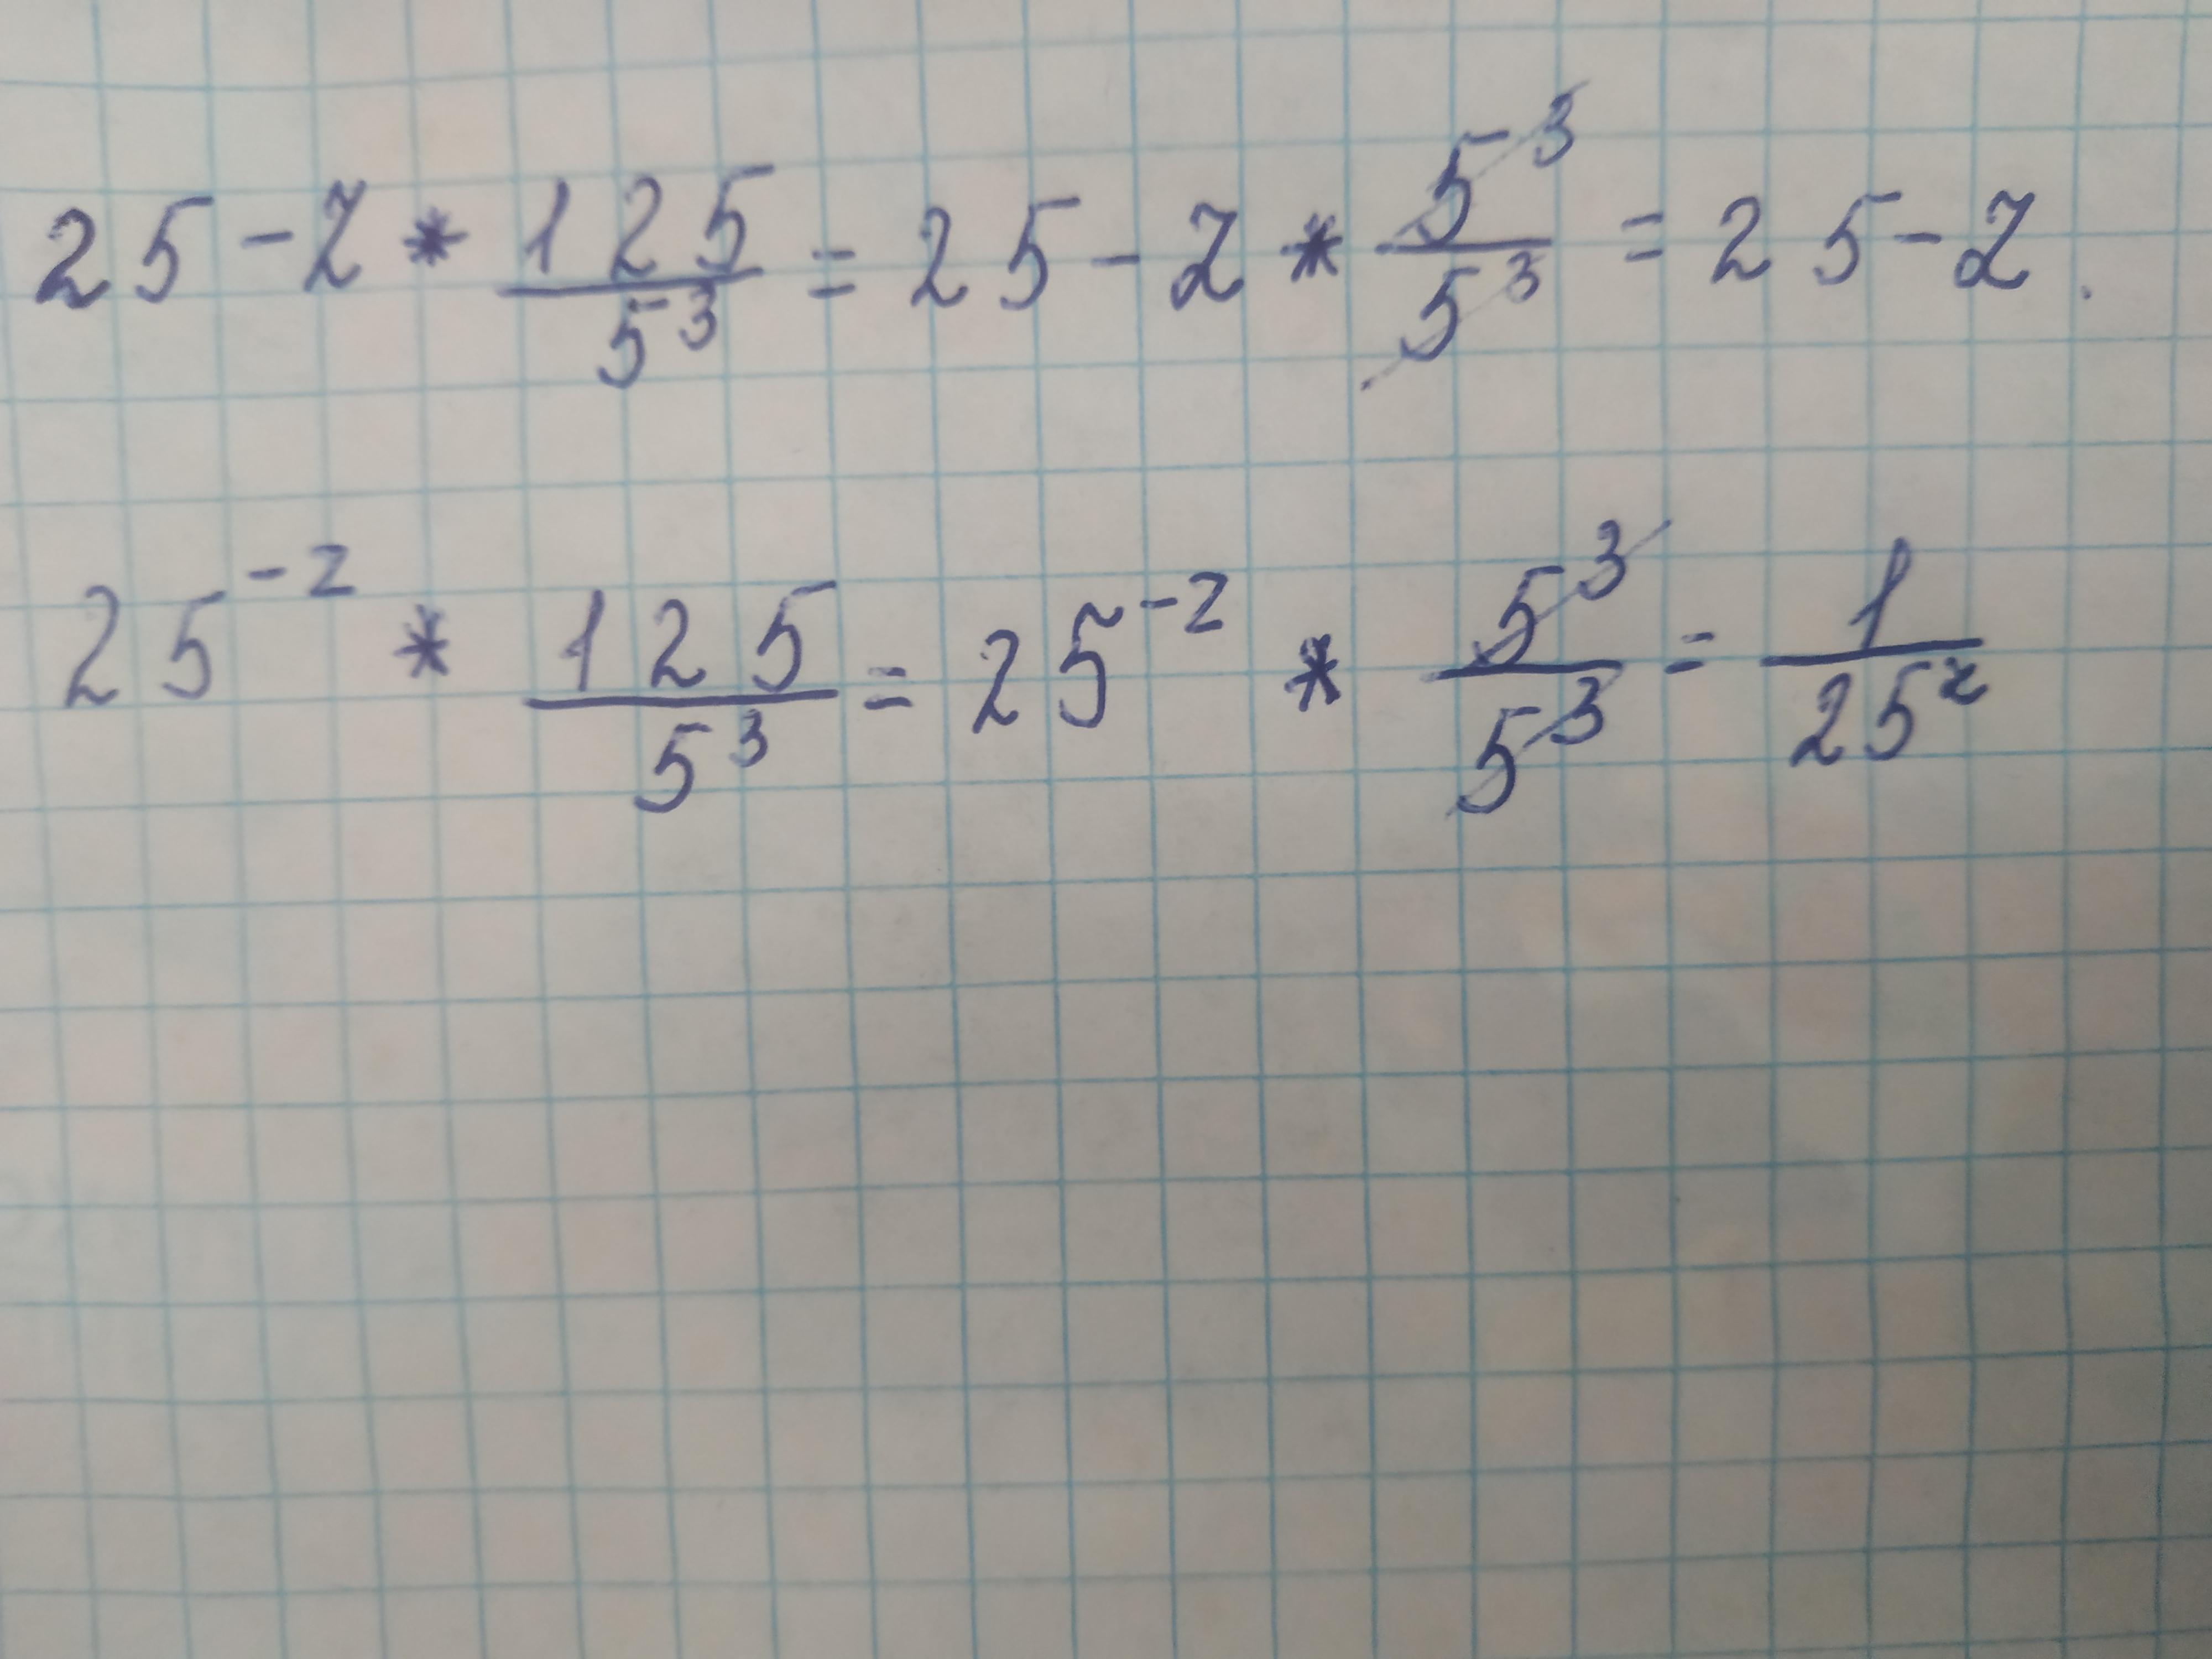 25 - 2 * 125/5³ = 25 - 2 * 5³/5³ = 25 - 2.
25⁻² * 125/5³ = 25⁻² * 5³/5³ = 1/25²